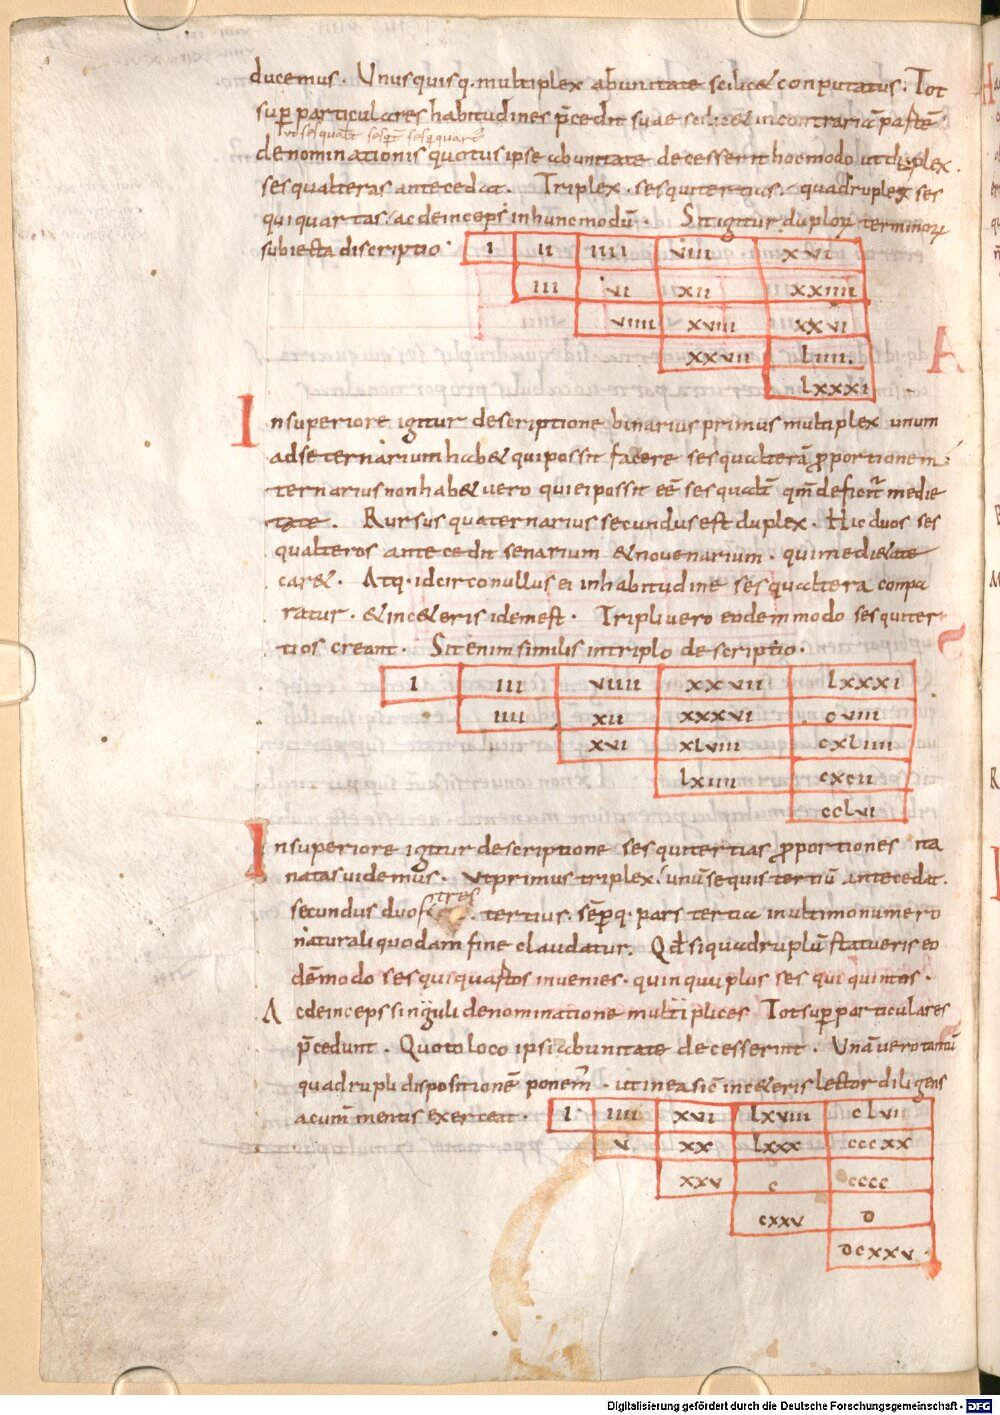 ducemus. Unusquisq. multiplex abunitate scilic& conputatus. Tot
sup particulares habitudines p̄cedit suae scilic& incontrariā partē
ut sesqualt̄ sesqt̄ sesquart̄
denominationis quotus ipse abunitate decesserit hocmodo utduplex.
sesqualteras antecedat. Triplex. sesquitertias. quadruplex ses
quiquartas/ acdeinceps inhuncmodū. Sit igitur duplorꝝ terminorꝝ
subiecta discriptio.
I II IIII VIII XVI
III VI XII XXIIII
VIIII XVIII XXVI
XXVII LIIII.
LXXXI
Insuperiore igitur descriptione binarius primus multiplex unum
adse ternarium hab& quipossit facere sesqualterā p̄portionem;
ternarius nonhab& uero quieipossit eē sesqualt̄ qm̄ deficit̄ medie
tate. Rursus quaternarius secundus est duplex. Hic duos ses
qualteros antecedit senarium & nouenarium. quimedi&ate
car&. Atq. idcirco nullus ei inhabitudine sesqualtera conpa
ratur. & inc&eris idemest. Tripli uero eodemmodo sesquiter
tios creant. Sit enim similis intriplo descriptio.
I III VIIII XXVII LXXXI
IIII XII XXXVI CVIII
XVI XLVIII CXLIIII
LXIIII CXCII
CCLVI
Insuperiore igitur descriptione sesquitertias p̄portiones ita
natas uidemus. Ut primus triplex. unū sequistertiū antecedat.
secundus duos. tres tertius. sēpq. pars tertia inultimo numero
naturali quodam fine claudatur. Qd̄ si quadruplū statueris eo
dēmodo sesquisquartos inuenies. quinquuplus ses qui quintos.
Acdeinceps singuli denominatione multiplices Totsup particulares
p̄cedunt. Quotoloco ipsi abunitate decesserint. Unā uero tantū
quadrupli dispositionē ponem̄. ut inea sic̄ inc&eris lector diligens
acumē mentis exerceat.
I IIII XVI LXVIII CLVI
V XX LXXX CCCXX
XXV C CCCC
CXXV D
DCXXV.
Digitalisierung gefördert durch die Deutsche Forschungsgemeinschaft - DFG